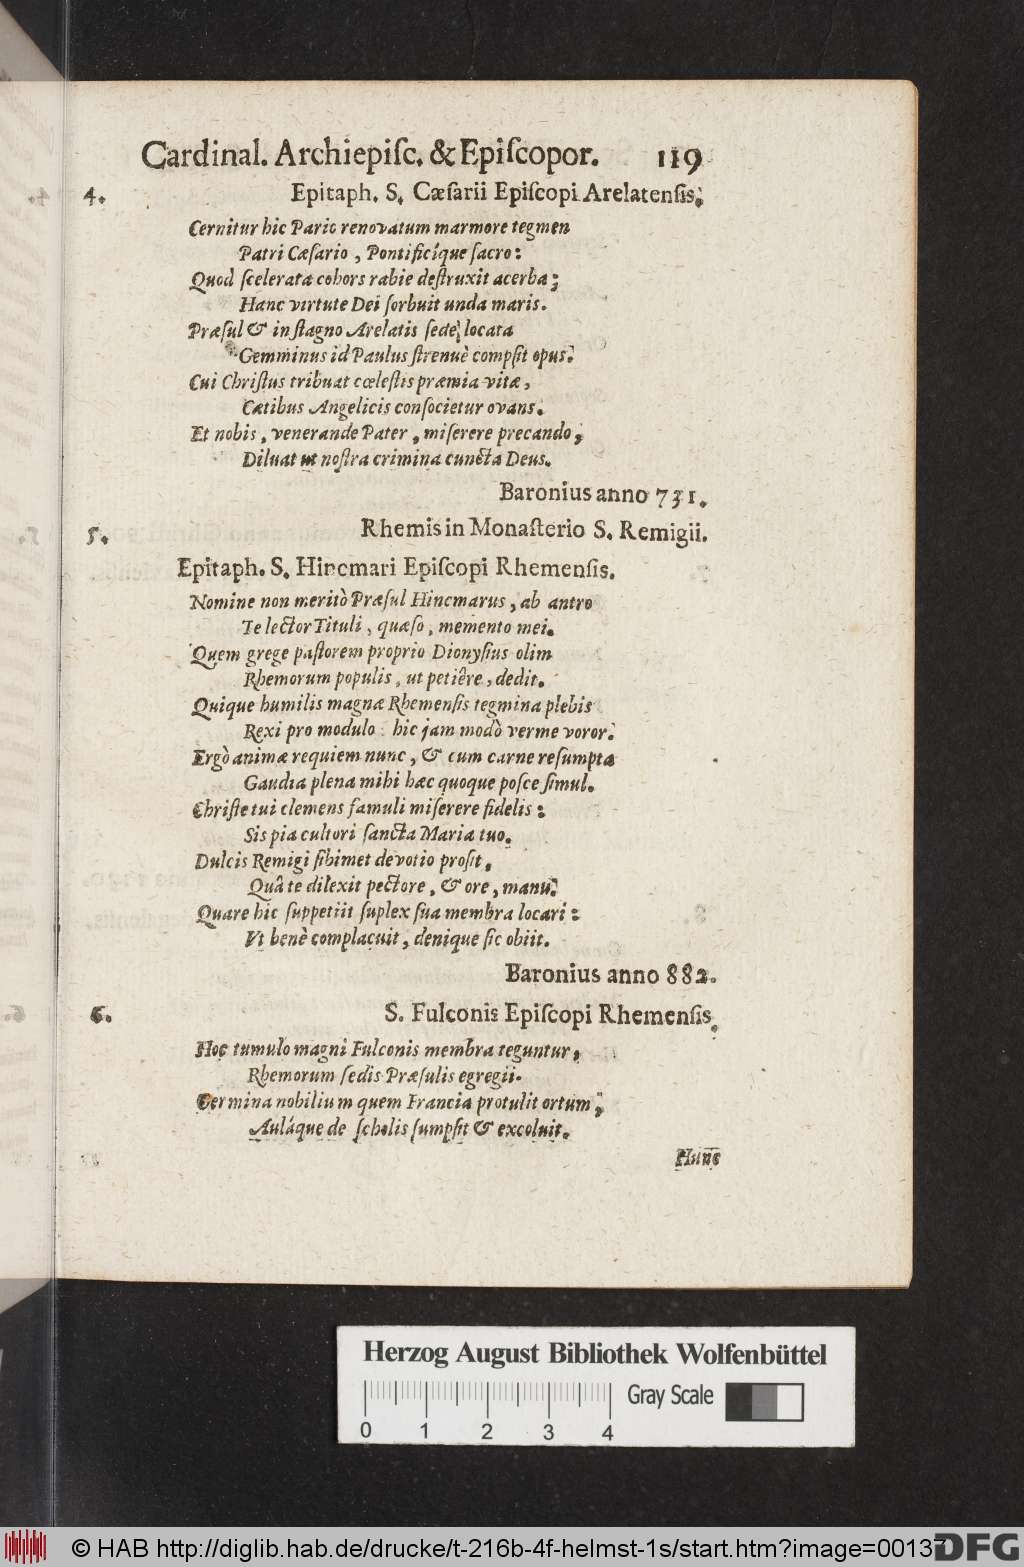 Cardinal. Archiepiſc. & Epiſcopor. 119
4. Epitaph. S. Cæſarii Epiſcopi Arelatenſis.
Cernitur hic Pario renovatum marmore tegmen
Patri Cæſario, Pontificíque ſacro:
Quod ſcelerata cohors rabie deſtruxit acerba;
Hanc virtute Dei ſorbuit unda maris.
Præſul & in ſtagno Arelatis ſede, locata
Gemminus id Paulus ſtrenuè compſit opus.
Cui Chriſtus tribuat cœleſtis præmia vitæ,
Cætibus Angelicis conſocietur ovans.
Et nobis, venerande Pater, miſerere precando,
Diluat ut noſtra crimina cuncta Deus.
Baronius anno 731.
5. Rhemis in Monaſterio S. Remigii.
Epitaph. S. Hincmari Epiſcopi Rhemenſis.
Nomine non meritò Præſul Hincmarus, ab antro
Te lector Tituli, quæſo, memento mei.
Quem grege paſtorem proprio Dionyſius olim
Rhemorum populis, ut petiêre, dedit.
Quique humilis magnæ Rhemenſis tegmina plebis
Rexi pro modulo: hic jam modò verme voror.
Ergò animæ requiem nunc, & cum carne reſumpta
Gaudia plena mihi hæc quoque poſce ſimul.
Chriſte tui clemens famuli miſerere fidelis:
Sis pia cultori ſancta Maria tuo.
Dulcis Remigi ſibimet devotio proſit,
Quâ te dilexit pectore, & ore, manu.
Quare hic ſuppetiit ſuplex ſua membra locari:
Vt benè complacuit, denique ſic obiit.
Baronius anno 882.
6. S. Fulconis Epiſcopi Rhemenſis.
Hoc tumulo magni Fulconis membra teguntur,
Rhemorum ſedis Præſulis egregii.
Germina nobilium quem Francia protulit ortum,
Auláque de ſcholis ſumpſit & excoluit.
Hunc
Herzog August Bibliothek Wolfenbüttel
Gray Scale
0 1 2 3 4
© HAB http://diglib.hab.de/drucke/t-216b-4f-helmst-1s/start.htm?image=00137
DFG